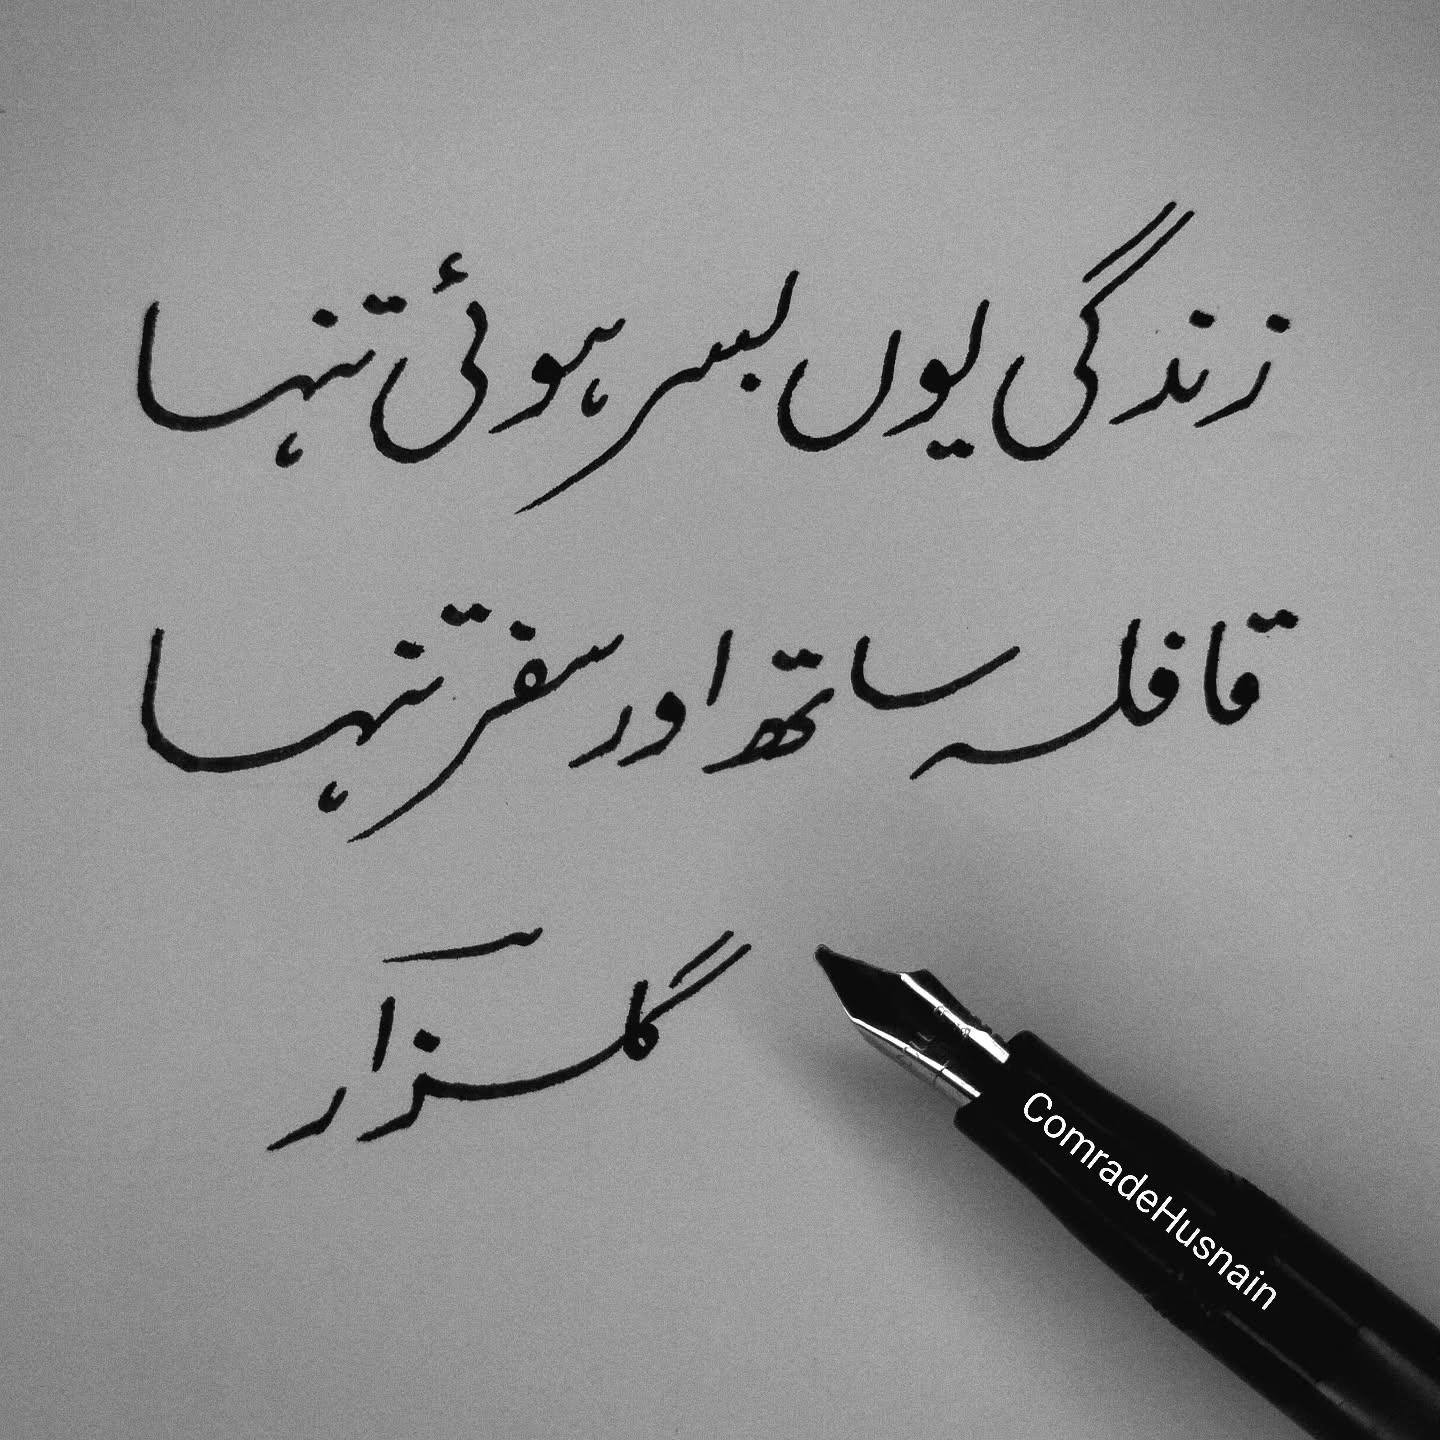 زندگی یوں بسر ہوئی تنہا
قافلہ ساتھ اور سفر تنہا
گلزار
ComradeHusnain